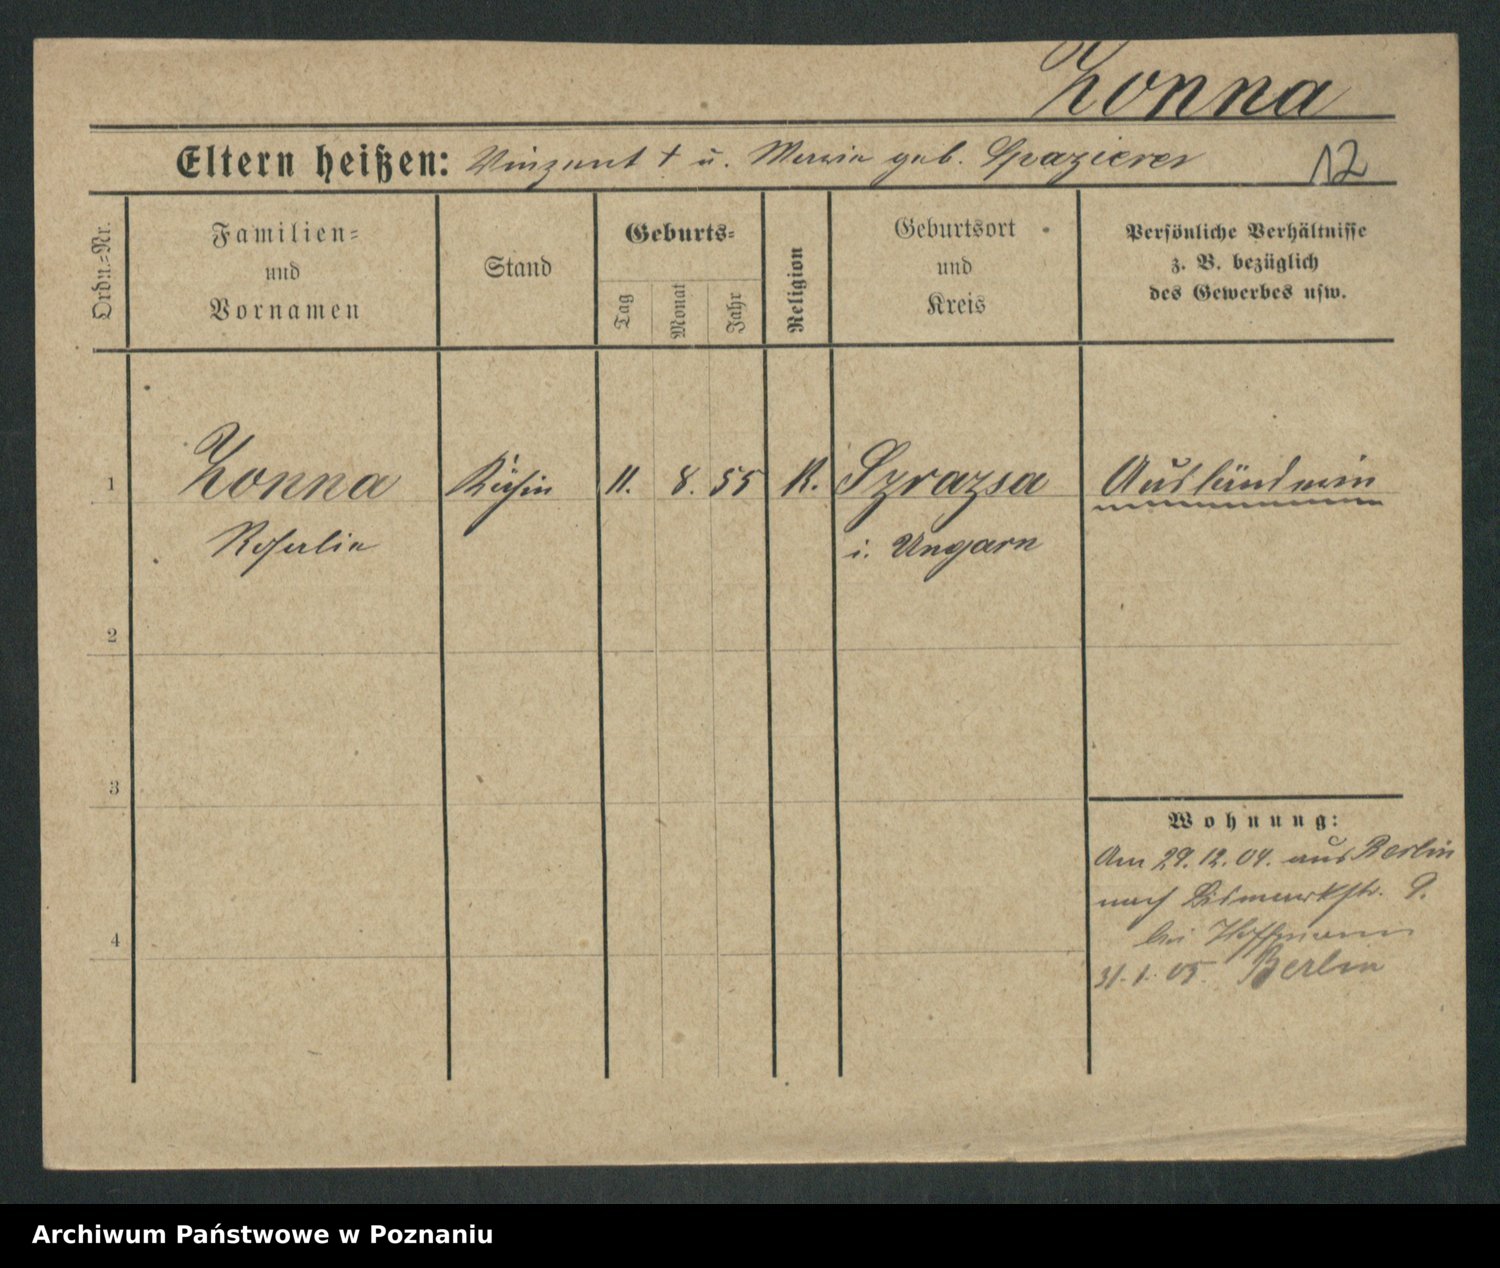 Zonna
Eltern heißen: Vinzent † u. Maria geb. Spazierer 12
Ordn.=Nr.
Familien=
und
Vornamen
Stand
Geburts=
Tag
Monat
Jahr
Religion
Geburtsort
und
Kreis
Persönliche Verhältnisse
z. B. bezüglich
des Gewerbes usw.
1 Zonna Köchin 11. 8. 55 K. Szrazsa Ausländerin
Rosalie i. Ungarn
2
3
4
Wohnung:
Am 29.12.04. aus Berlin
nach Bismarkstr. 9.
bei Hoffmann
31.1.05 Berlin
Archiwum Państwowe w Poznaniu